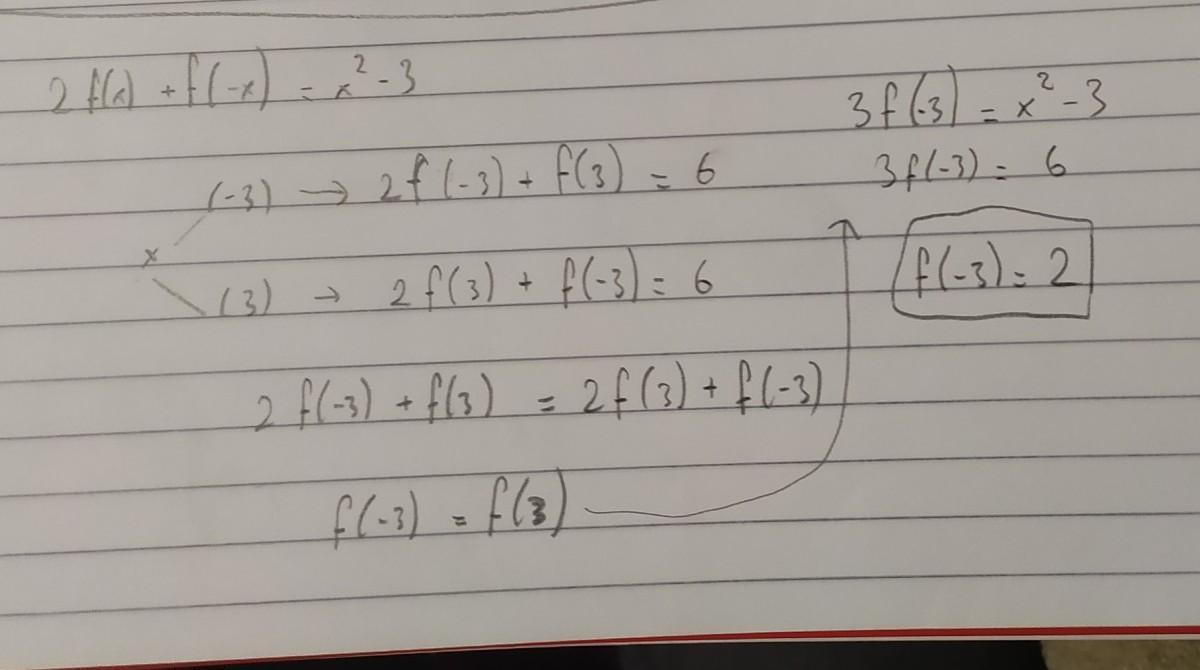 2f(x) + f(-x) = x² - 3
(-3) → 2f(-3) + f(3) = 6
x
(3) → 2f(3) + f(-3) = 6
2f(-3) + f(3) = 2f(3) + f(-3)
f(-3) = f(3)
3f(-3) = x² - 3
3f(-3) = 6
f(-3) = 2